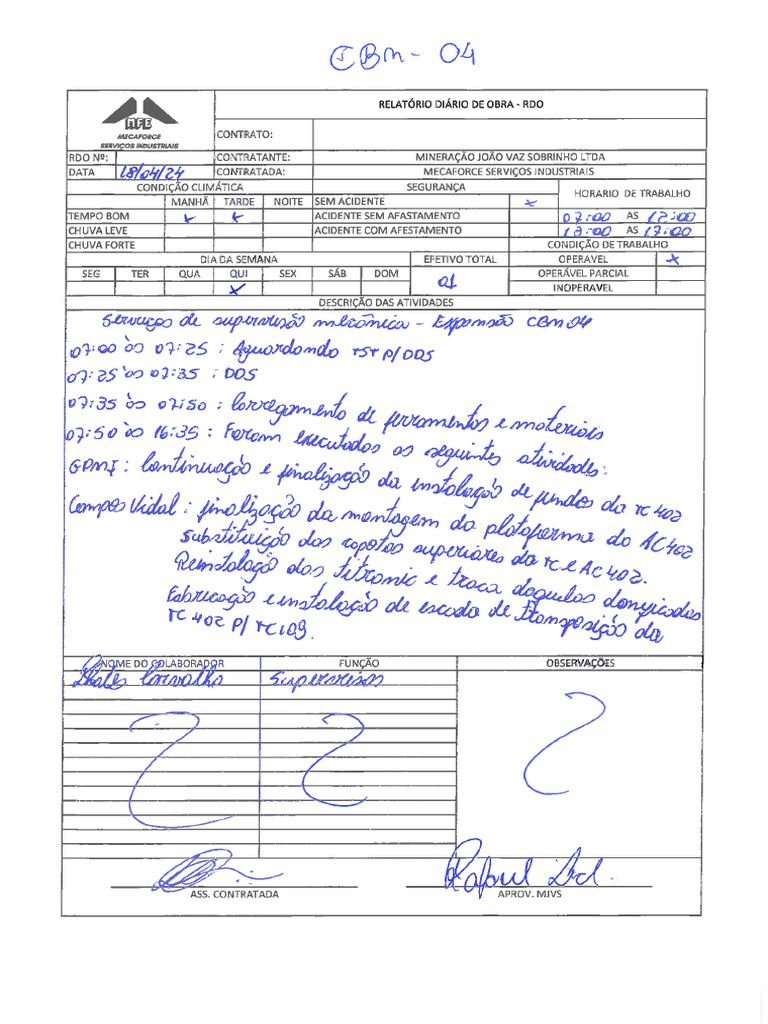 CBM - 04
RELATÓRIO DIÁRIO DE OBRA - RDO
MFE
MECAFORCE
SERVIÇOS INDUSTRIAIS
CONTRATO:
RDO Nº: CONTRATANTE: MINERAÇÃO JOÃO VAZ SOBRINHO LTDA
DATA 18/04/24 CONTRATADA: MECAFORCE SERVIÇOS INDUSTRIAIS
CONDIÇÃO CLIMÁTICA SEGURANÇA HORARIO DE TRABALHO
MANHÃ TARDE NOITE SEM ACIDENTE x
TEMPO BOM x x ACIDENTE SEM AFASTAMENTO 07:00 AS 12:00
CHUVA LEVE ACIDENTE COM AFESTAMENTO 13:00 AS 17:00
CHUVA FORTE CONDIÇÃO DE TRABALHO
DIA DA SEMANA EFETIVO TOTAL OPERAVEL x
SEG TER QUA QUI SEX SÁB DOM 01 OPERÁVEL PARCIAL
x INOPERAVEL
DESCRIÇÃO DAS ATIVIDADES
Serviços de supervisão mecânica - Expansão CBM 04
07:00 às 07:25 : Aguardando TST p/ DDS
07:25 às 07:35 : DDS
07:35 às 07:50 : Carregamento de ferramentas e materiais
07:50 às 16:35 : Foram executados as seguintes atividades:
GPMI: Continuação e finalização da instalação de fundos da TC 402
Campos Vidal : finalização da montagem da plataforma do AC 402
Substituição das capotas superiores da TC e AC 402.
Reinstalação dos titronic e troca daqueles danificados
Fabricação e instalação de escada de transposição da
TC 402 p/ TC 109.
NOME DO COLABORADOR FUNÇÃO OBSERVAÇÕES
Thales Carvalho Supervisor
ASS. CONTRATADA APROV. MJVS